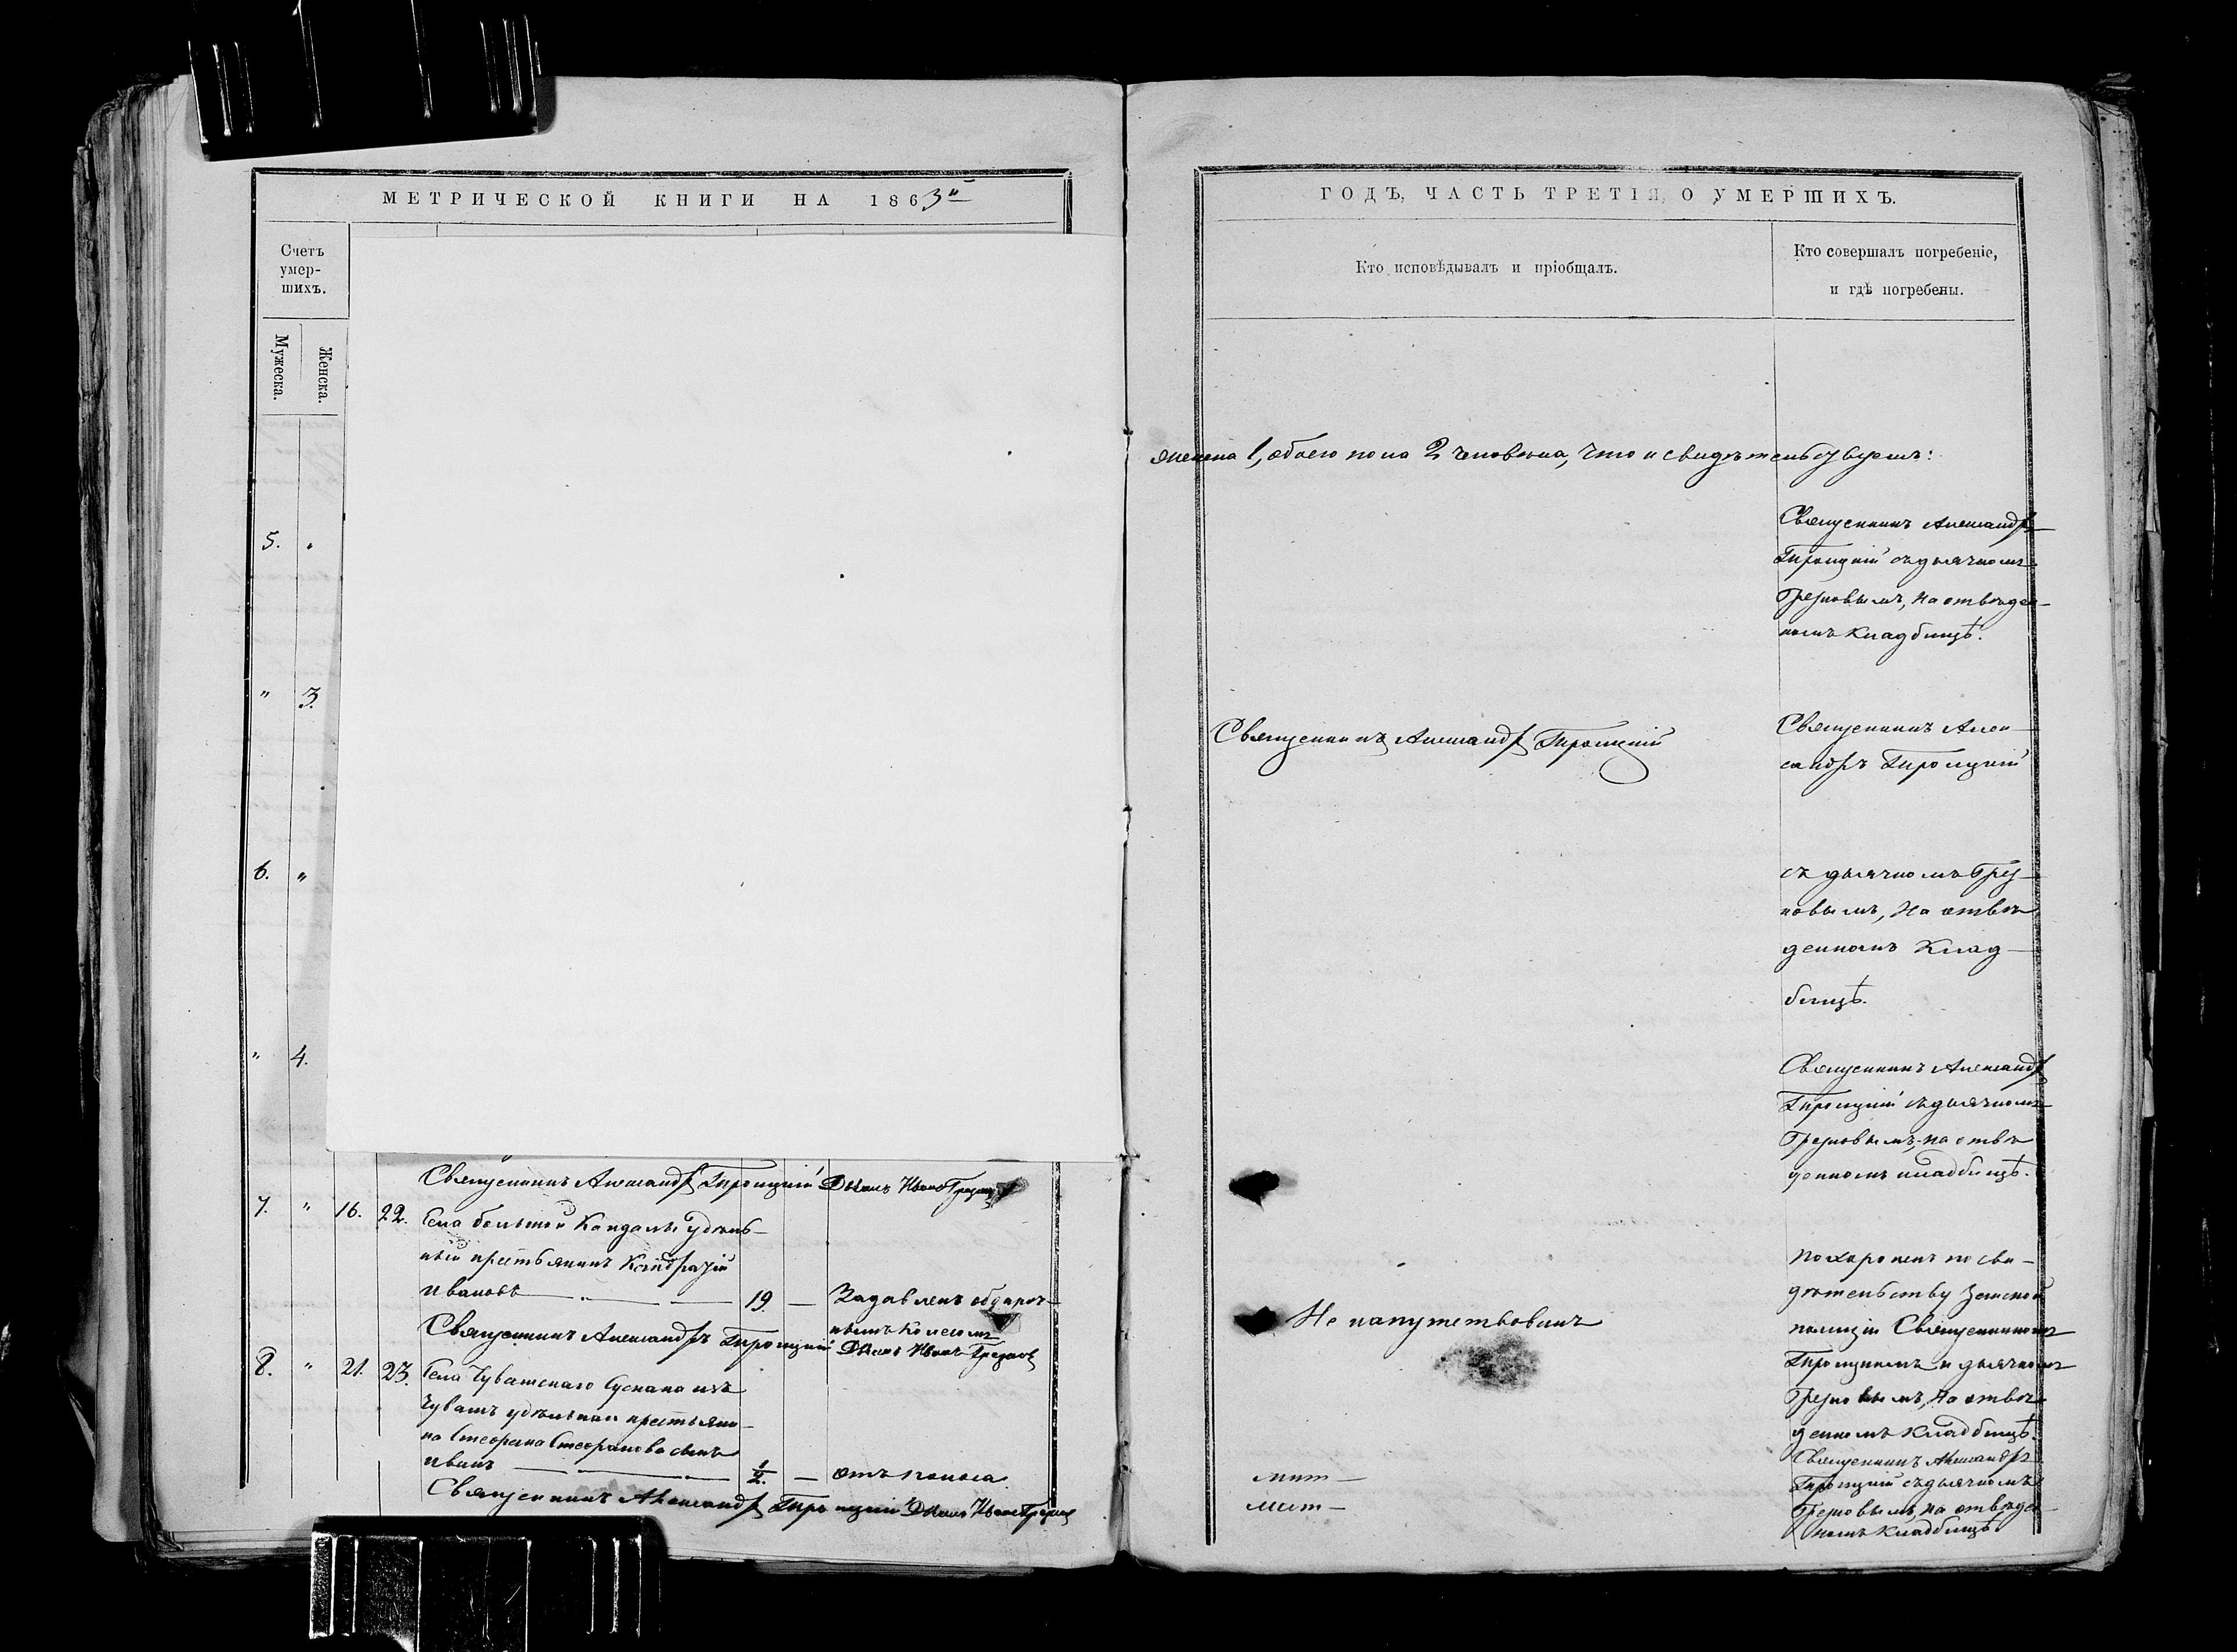 МЕТРИЧЕСКОЙ КНИГИ НА 1863й
Счетъ
умер-
шихъ.
Мужеска.
Женска.
5. "
" 3.
6. "
" 4.
Священникъ Александръ Троицкій Дьячокъ Иванъ Грезновъ
7. " 16. 22. Села большой Кандалы удѣль-
ный крестьянинъ Кондратій
Ивановъ 19. — Задавленъ
колесомъ
Священникъ Александръ Троицкій Дьячокъ Иванъ Грезновъ
8. " 21. 23. Села Чувашскаго Сускана изъ
чувашъ удѣльнаго крестьяни-
на Стефана Стефанова сынъ
Иванъ 1/2. — отъ поноса
Священникъ Александръ Троицкій Дьячокъ Иванъ Грезновъ
ГОДЪ, ЧАСТЬ ТРЕТІЯ, О УМЕРШИХЪ.
Кто исповѣдывалъ и пріобщалъ.
Кто совершалъ погребеніе,
и гдѣ погребены.
женска 1, обоего пола 2 человѣка, что и свидѣтельствуемъ:
Священникъ Александръ
Троицкій съ дьячкомъ
Грезновымъ, на отведен-
номъ кладбищѣ.
Священникъ Александръ Троицкій
Священникъ Алек-
сандръ Троицкій
съ дьячкомъ Грез-
новымъ, на отве-
денномъ клад-
бищѣ.
Священникъ Александръ
Троицкій съ дьячкомъ
Грезновымъ, на отве-
денномъ кладбищѣ.
Похороненъ по сви-
дѣтельству Земской
полиціи Священникомъ
Троицкимъ и дьячкомъ
Грезновымъ, на отве-
денномъ кладбищѣ.
Не напутствованъ
Священникъ Александръ
Троицкій съ дьячкомъ
Грезновымъ, на отведен-
номъ кладбищѣ